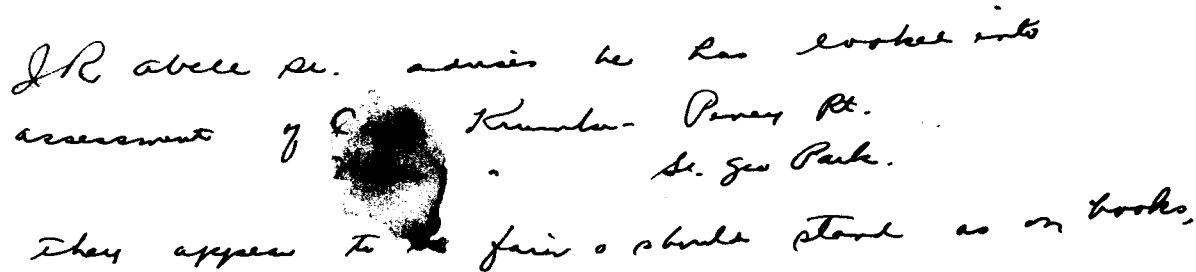 JR Abell Sr. advises he has looked into
assessment of Krumke - Piney Pt.
" St. Geo Park.
they appear to be fair & should stand as on books,